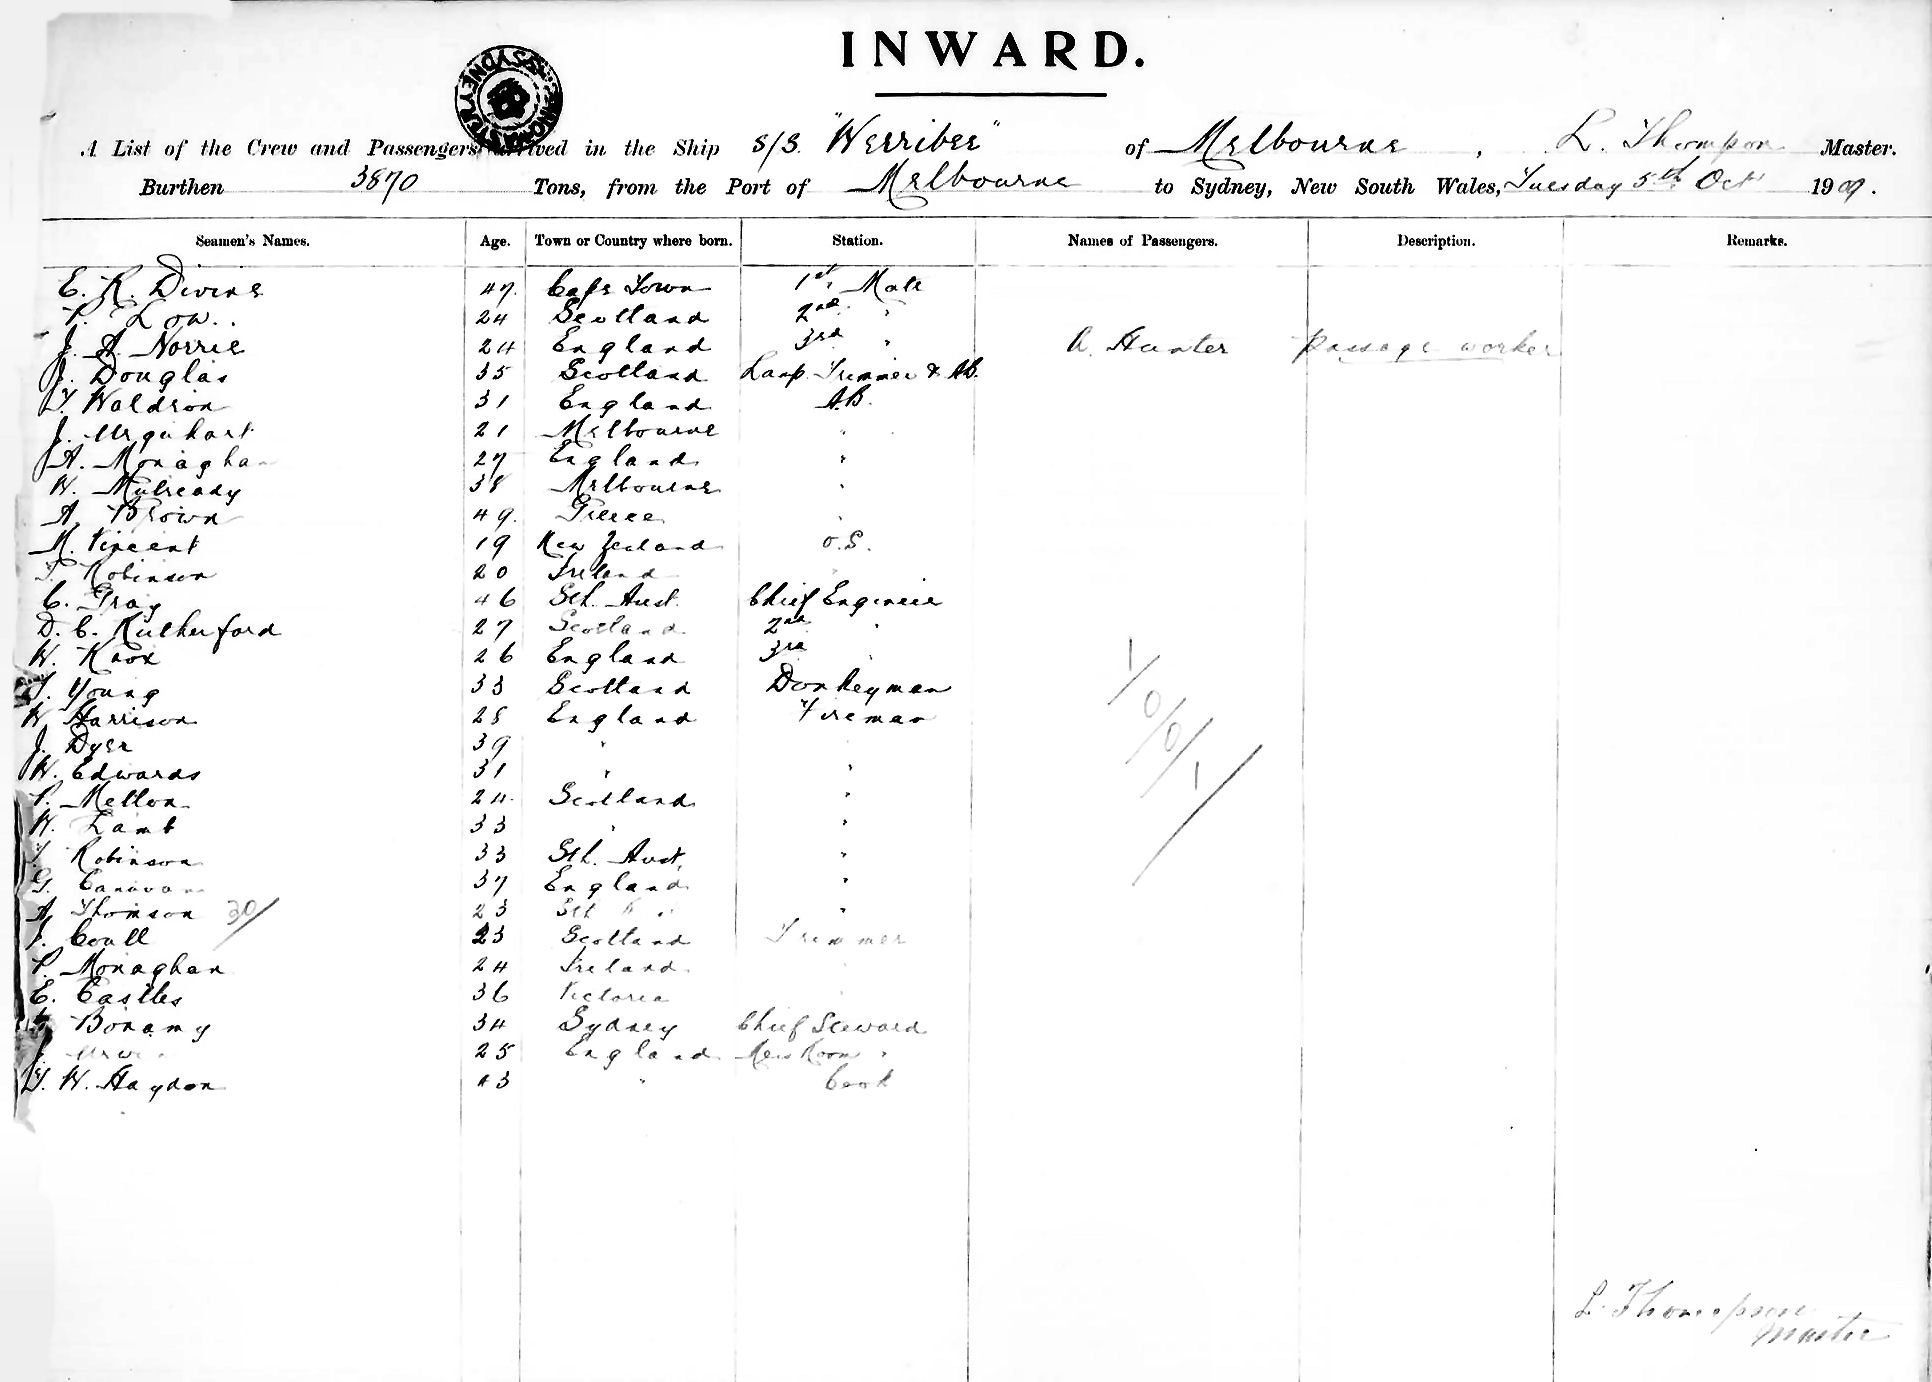 INWARD.
SYDNEY
A List of the Crew and Passengers arrived in the Ship S/S. "Werribee" of Melbourne, L. Thompson Master.
Burthen 3870 Tons, from the Port of Melbourne to Sydney, New South Wales, Tuesday 5th Oct 1909.
Seamen's Names. Age. Town or Country where born. Station. Names of Passengers. Description. Remarks.
E. R. Divine 47. Cape Town 1st. Mate
P. Low. 24 Scotland 2nd "
J. A. Norrie 24 England 3rd " A. Hunter Passage worker
J. Douglas 35 Scotland Lamp Trimmer & AB.
T. Waldron 31 England A.B.
J. Urquhart 21 Melbourne "
A. Monaghan 27 England "
W. Mulready 38 Melbourne "
A. Brown 49. Greece "
M. Vincent 19 New Zealand O.S.
T. Robinson 20 Ireland
C. Gray 46 Sth. Aust. Chief Engineer
D. C. Rutherford 27 Scotland 2nd "
W. Knox 26 England 3rd "
T. Young 33 Scotland Donkeyman
W. Harrison 28 England Fireman
J. Dyer 39 " "
W. Edwards 31 " "
P. Mellon 24 Scotland "
W. Lamb 33 " "
Robinson 33 Sth. Aust. "
G. Canavan 37 England "
A. Thomson 30/ 23 Sth "
J. Coull 23 Scotland Trimmer
P. Monaghan 24 Ireland
E. Castles 36 Victoria
Bonamy 34 Sydney Chief Steward
J. 25 England Mess Room "
T. W. Haydon 43 " Cook
1/0/0/1/
L. Thompson
Master